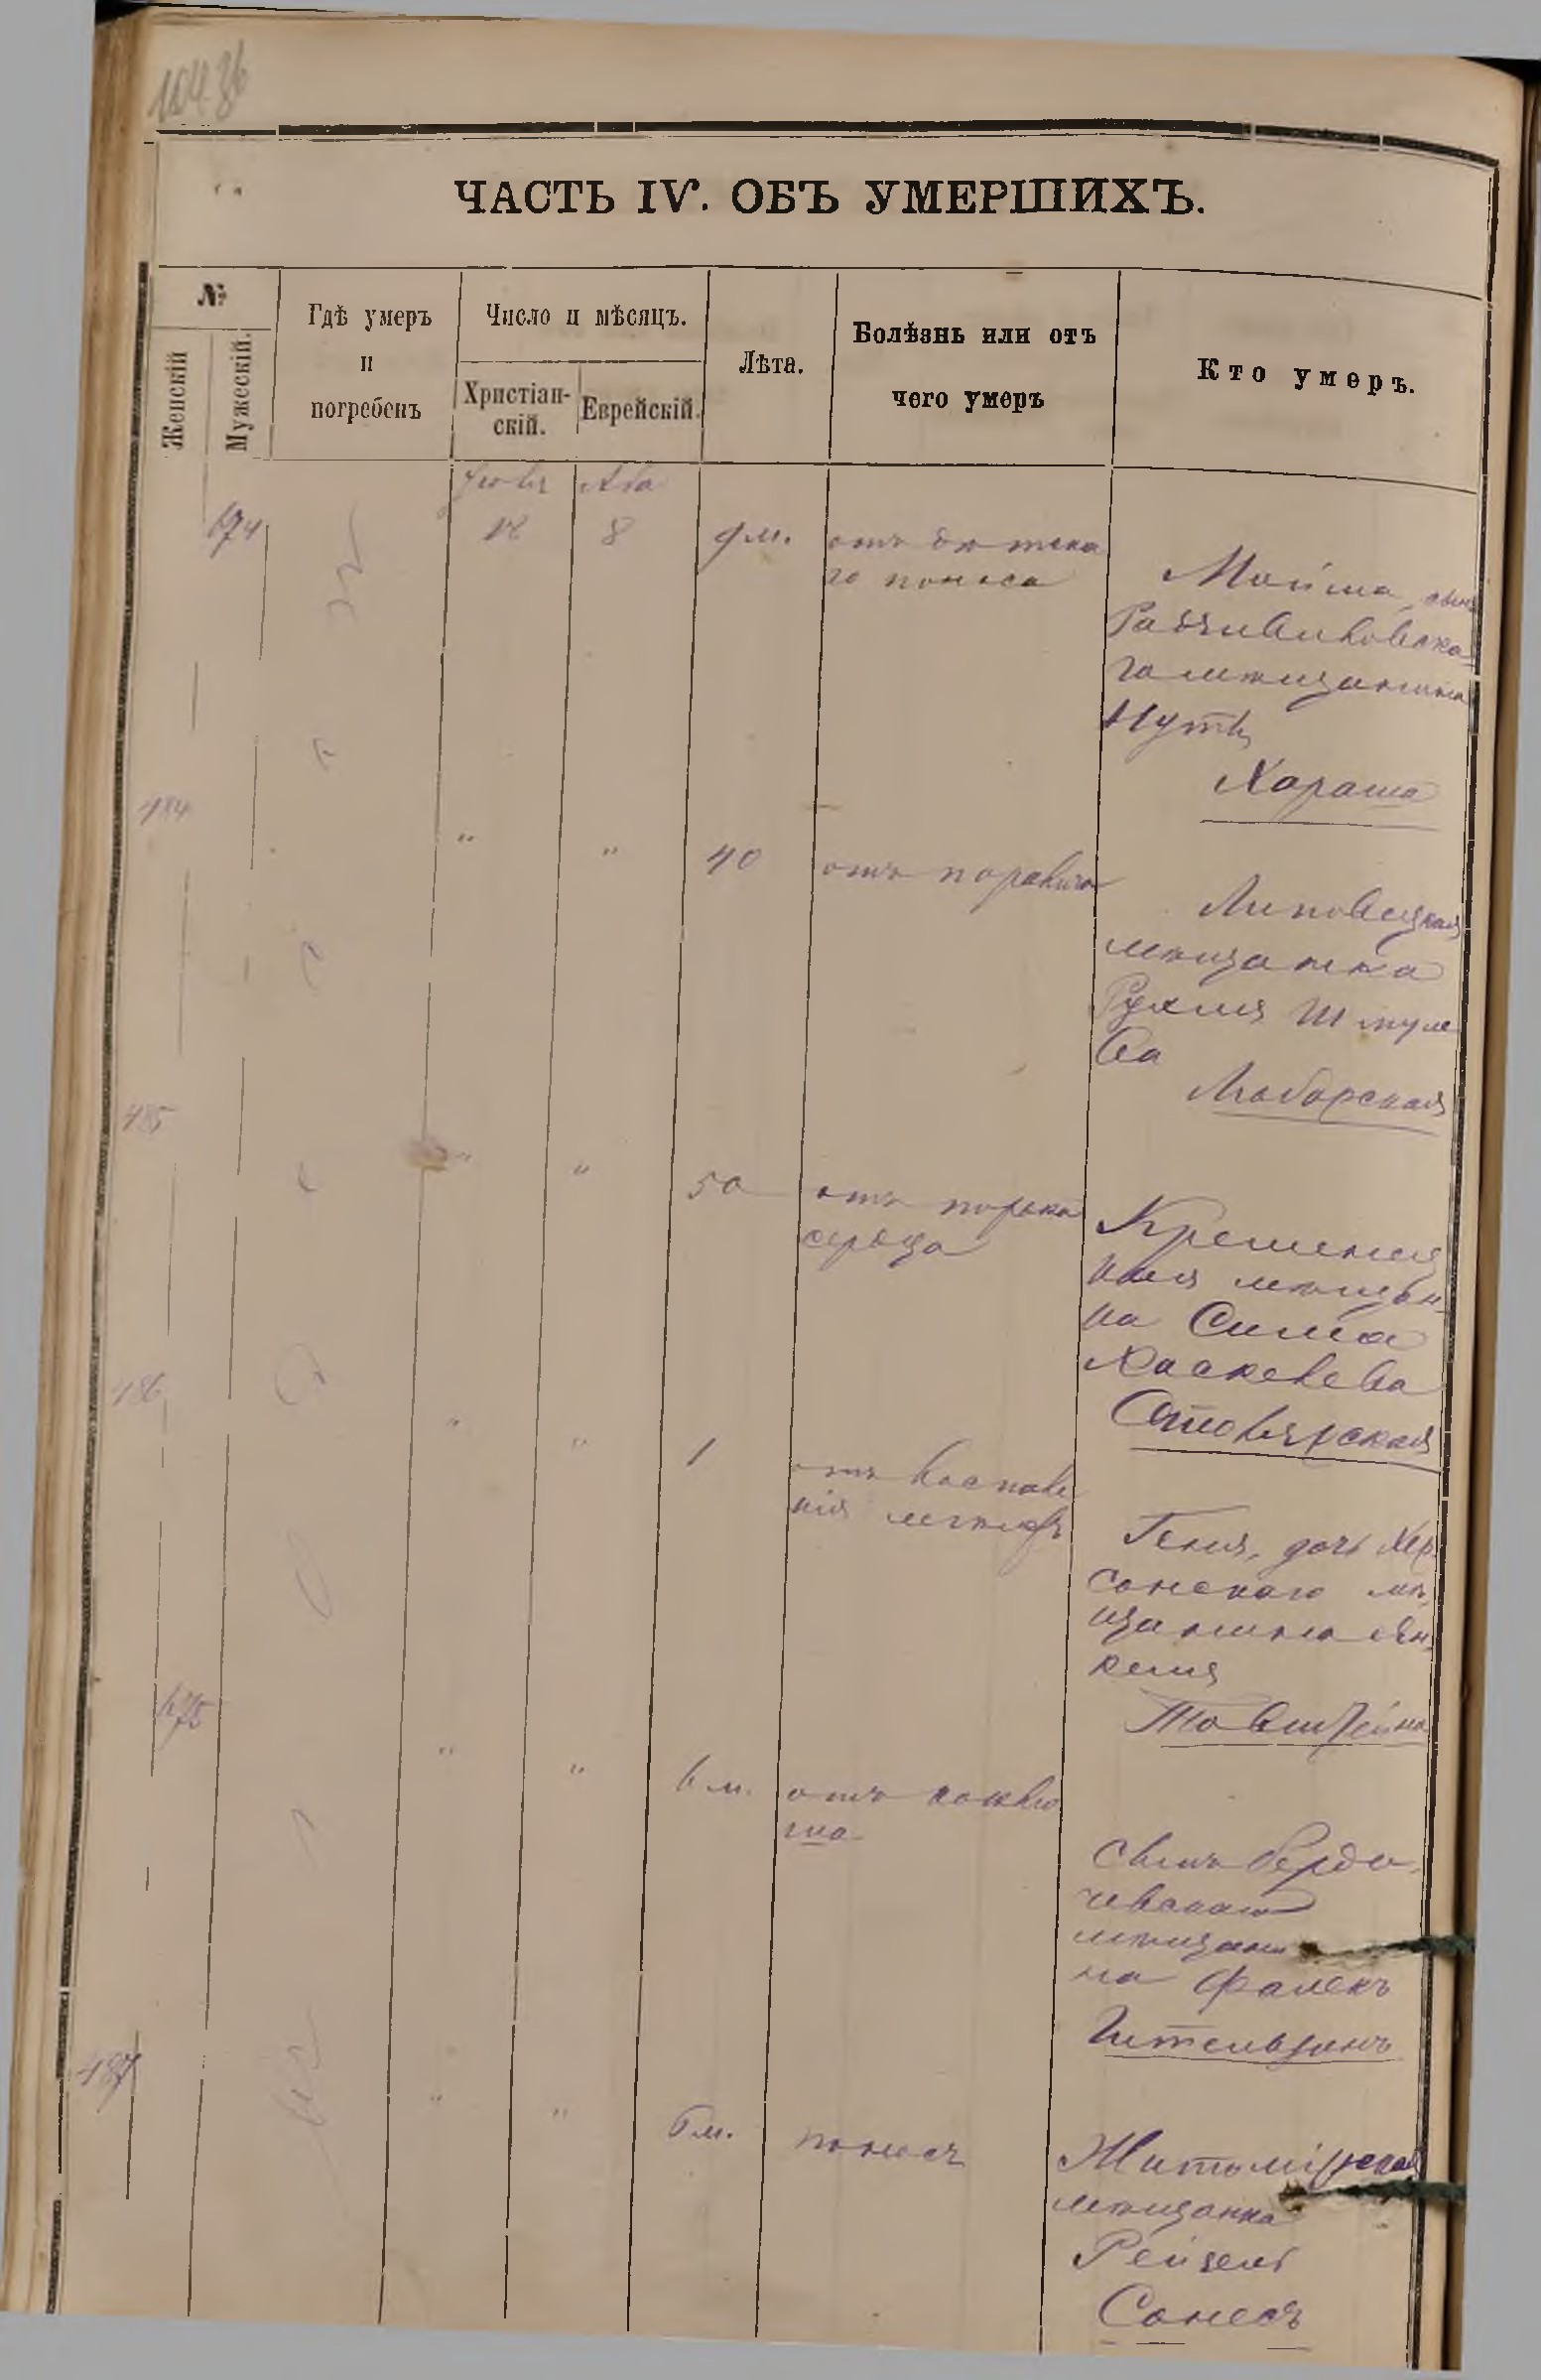 ЧАСТЬ IV. ОБЪ УМЕРШИХЪ.
№
Женскій
Мужескій.
Гдѣ умеръ
и
погребенъ
Число и мѣсяцъ.
Христіан-
скій.
Еврейскій.
Лѣта.
Болѣзнь или отъ
чего умеръ
Кто умеръ.
Іюля Ава
674 12 8 9 м. отъ дѣтска
го поноса
Мойша, сынъ
Радзивиловска
го мѣщанина
Нутъ
Хараша
484 " " 40 отъ паралича
Липовецкая
мѣщанка
Рухля Шмуле
ва
Любарская
485 " " 50 отъ порока
сердца
Кременец
кая мѣщан-
ка Сима
Хаскелева
Столярская
486 " " 1 отъ воспале
нія легкихъ
Геня, дочь Хер
сонскаго мѣ
щанина Ян
келя
675 " " 6 м. отъ коклю
ша
Сынъ Берди-
чевскаго
мѣщани
на Фалекъ
487 " " 6 м. поносъ
Житомірская
мѣщанка
Рейзель
Сонесъ